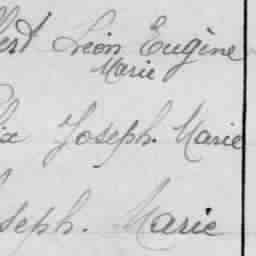 Léon Eugène
Marie
Joseph. Marie
seph. Marie